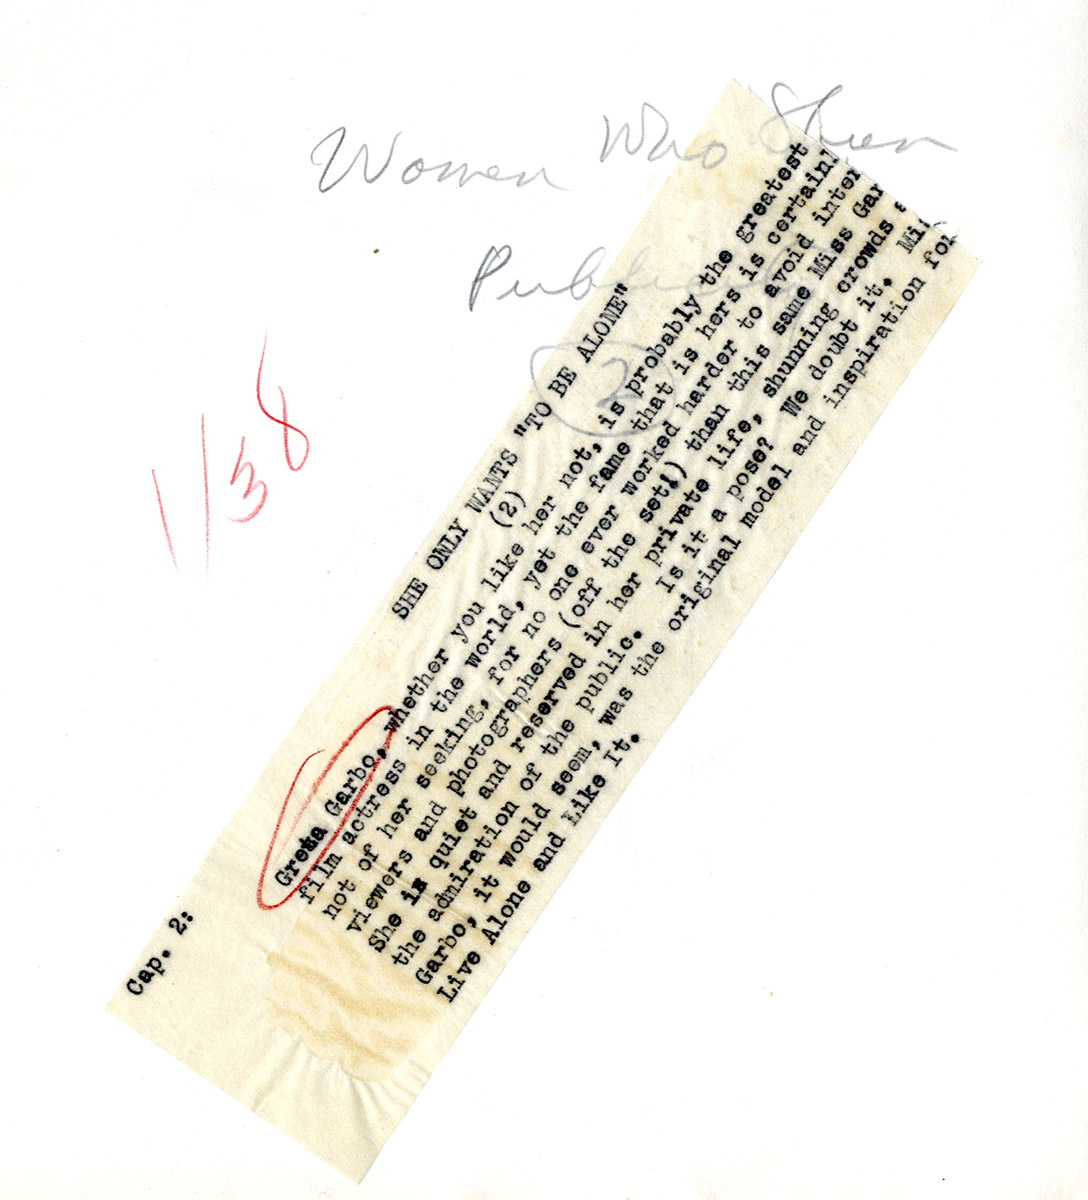 Women Who Shun
Publicity
2
1/38
SHE ONLY WANTS "TO BE ALONE"
(2)
Cap. 2:
Greta Garbo, whether you like her not, is probably the greatest
film actress in the world, yet the fame that is hers is certainl
not of her seeking, for no one ever worked harder to avoid inter
viewers and photographers (off the set!) than this same Miss Gar
She is quiet and reserved in her private life, shunning crowds a
the admiration of the public. Is it a pose? We doubt it. Mis
Garbo, it would seem, was the original model and inspiration for
Live Alone and Like It.